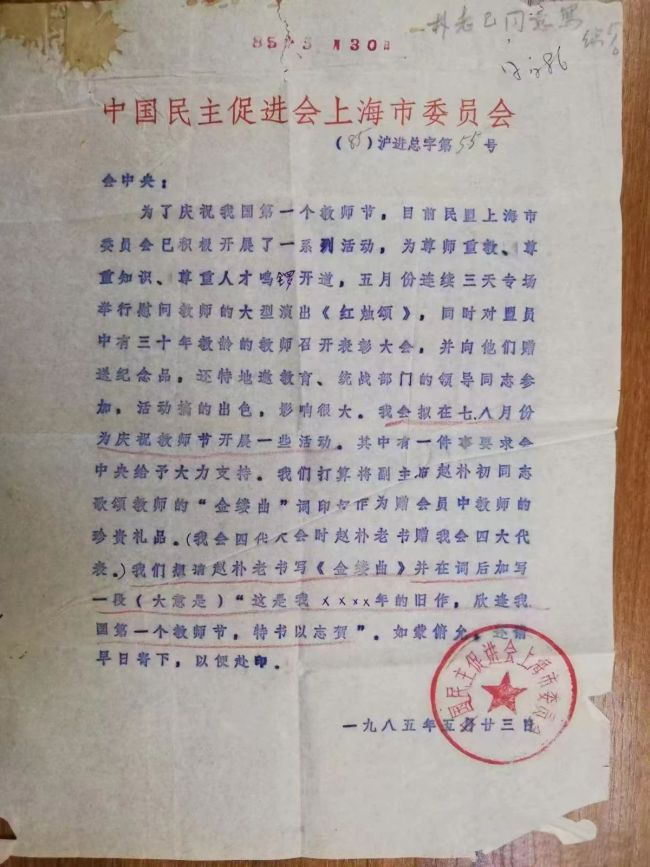 朴老已同意写
85 5月30日
中国民主促进会上海市委员会
(85)沪进总字第55号
会中央：
为了庆祝我国第一个教师节，目前民盟上海市
委员会已积极开展了一系列活动，为尊师重教、尊
重知识、尊重人才鸣锣开道，五月份连续三天专场
举行慰问教师的大型演出《红烛颂》，同时对盟员
中有三十年教龄的教师召开表彰大会，并向他们赠
送纪念品，还特地邀教育、统战部门的领导同志参
加，活动搞的出色，影响很大。我会拟在七、八月份
为庆祝教师节开展一些活动。其中有一件事要求会
中央给予大力支持。我们打算将副主席赵朴初同志
歌颂教师的“金缕曲”词印好作为赠会员中教师的
珍贵礼品。(我会四代大会时赵朴老书赠我会四大代
表。)我们想请赵朴老书写《金缕曲》并在词后加写
一段(大意是)“这是我××××年的旧作，欣逢我
国第一个教师节，特书以志贺”。如蒙俯允，还请
早日寄下，以便赴印。
中国民主促进会上海市委员会
一九八五年五月廿三日